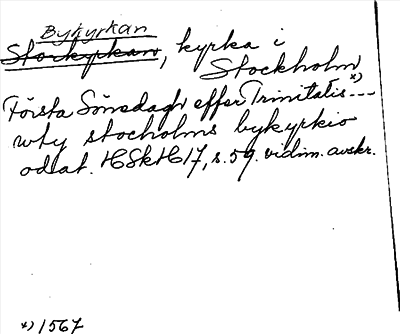 Bykyrkan
Storkyrkan, kyrka i
Stockholm
Första Sönedagh effter Trinitatis x)---
wty stocholms bykyrkio
odat. HSkH17, s.59. vidim. avskr.
x) 1567